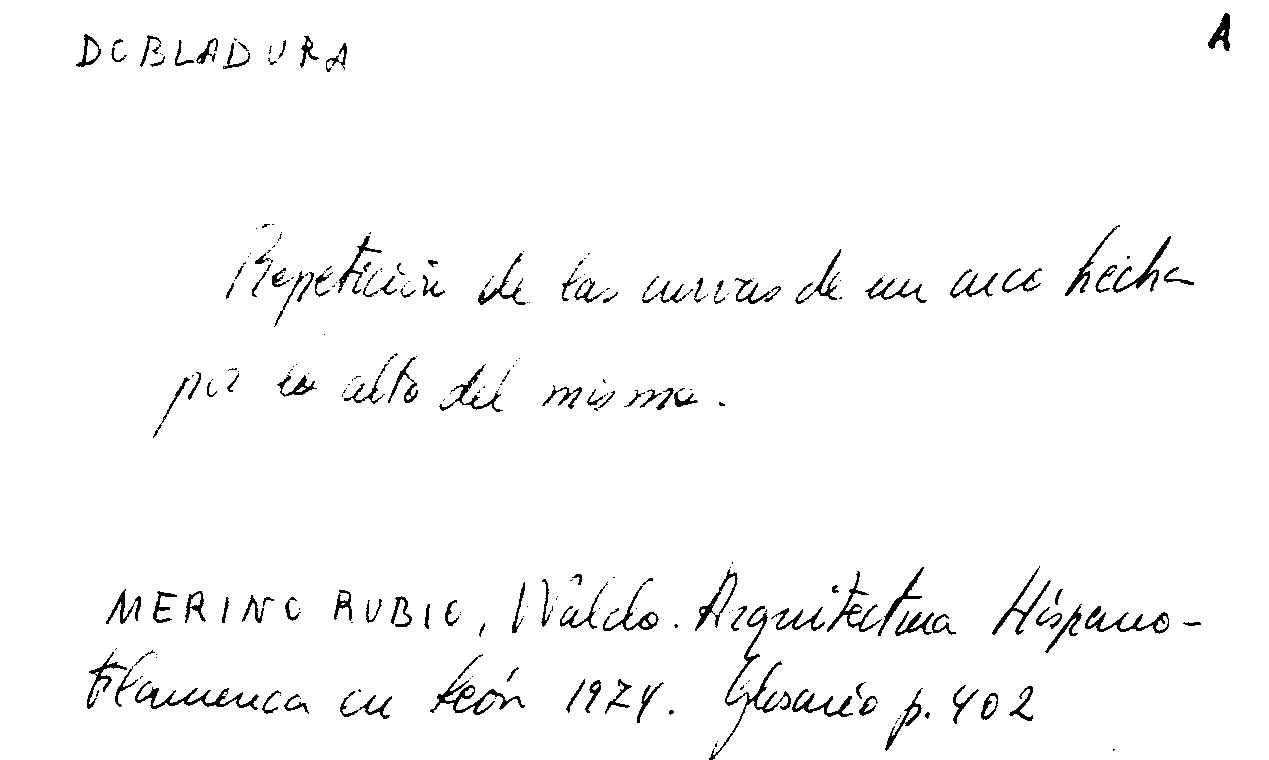 DOBLADURA A
Repetición de las curvas de un arco hecha
por lo alto del mismo.
MERINO RUBIO, Waldo. Arquitectura Hispano-
Flamenca en León 1974. Glosario p. 402